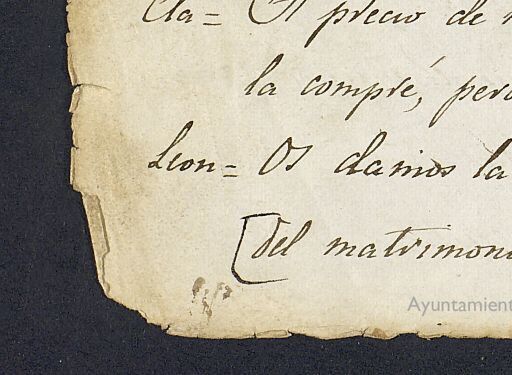 Cla= A precio de
la compré, pero
Leon= Os damos la
del matrimoni
Ayuntamient